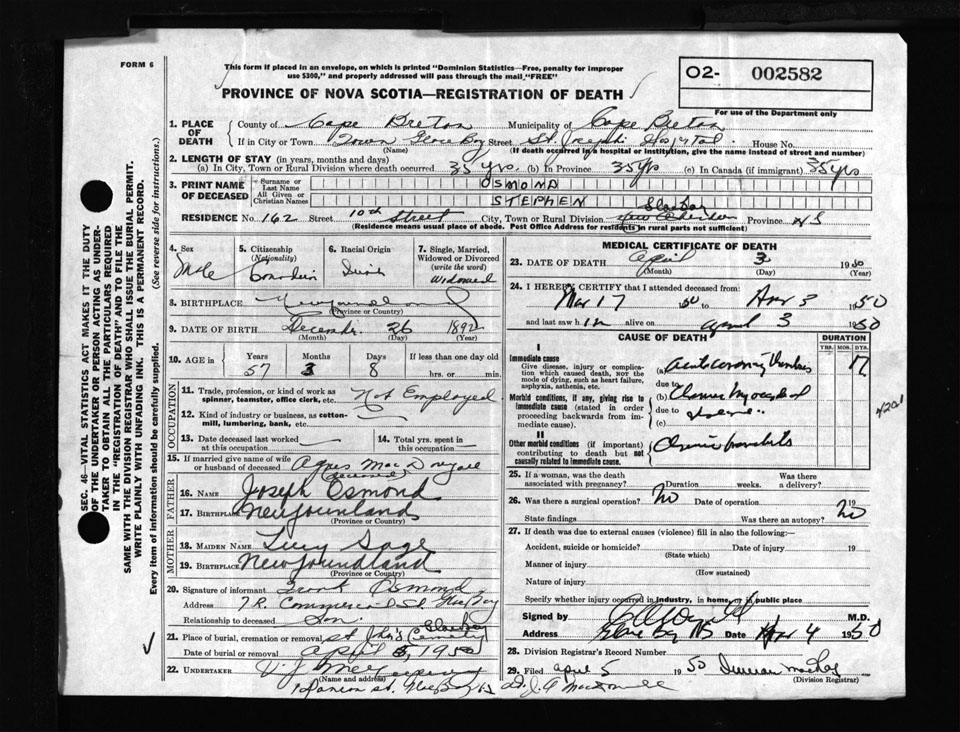 FORM 6
This form if placed in an envelope, on which is printed "Dominion Statistics—Free, penalty for improper
use $300," and properly addressed will pass through the mail "FREE"
PROVINCE OF NOVA SCOTIA—REGISTRATION OF DEATH
02- 002582
For use of the Department only
SEC. 46—VITAL STATISTICS ACT MAKES IT THE DUTY
OF THE UNDERTAKER OR PERSON ACTING AS UNDER-
TAKER TO OBTAIN ALL THE PARTICULARS REQUIRED
IN THE "REGISTRATION OF DEATH" AND TO FILE THE
SAME WITH THE DIVISION REGISTRAR WHO SHALL ISSUE THE BURIAL PERMIT.
WRITE PLAINLY WITH UNFADING INK. THIS IS A PERMANENT RECORD.
Every item of information should be carefully supplied. (See reverse side for instructions.)
1. PLACE OF DEATH
County of Cape Breton Municipality of Cape Breton
If in City or Town Town Glace Bay Street St Joseph's Hospital House No.
(Name) (If death occurred in a hospital or institution, give the name instead of street and number)
2. LENGTH OF STAY (in years, months and days)
(a) In City, Town or Rural Division where death occurred 35 yrs. (b) In Province 35 yrs (c) In Canada (if immigrant) 35 yrs
3. PRINT NAME OF DECEASED
Surname or Last Name OSMOND
All Given or Christian Names STEPHEN
RESIDENCE No. 162 Street 10th Street City, Town or Rural Division New Aberdeen Province NS
(Residence means usual place of abode. Post Office Address for residents in rural parts not sufficient)
4. Sex Male
5. Citizenship (Nationality) Canadian
6. Racial Origin
7. Single, Married, Widowed or Divorced (write the word) Widowed
8. BIRTHPLACE Newfoundland
(Province or Country)
9. DATE OF BIRTH December 26 1892
(Month) (Day) (Year)
10. AGE in Years 57 Months 3 Days 8 If less than one day old hrs. or min.
OCCUPATION
11. Trade, profession, or kind of work as spinner, teamster, office clerk, etc. Not Employed
12. Kind of industry or business, as cotton-mill, lumbering, bank, etc.
13. Date deceased last worked at this occupation
14. Total yrs. spent in this occupation
15. If married give name of wife or husband of deceased Agnes MacDougall
(deceased)
FATHER
16. Name Joseph Osmond
17. Birthplace Newfoundland
(Province or Country)
MOTHER
18. Maiden Name Lucy Sage
19. Birthplace Newfoundland
(Province or Country)
20. Signature of informant Frank Osmond
Address 7R. Commercial St Glace Bay
Relationship to deceased Son
21. Place of burial, cremation or removal St John's Cemetery
Date of burial or removal April 5, 1950
22. UNDERTAKER
Name and address
MEDICAL CERTIFICATE OF DEATH
23. DATE OF DEATH April 3 1950
(Month) (Day) (Year)
24. I HEREBY CERTIFY that I attended deceased from:
Mar 17 50 to Apr 3 1950
and last saw him alive on April 3 1950
CAUSE OF DEATH
DURATION
YRS. MOS. DYS.
I
Immediate cause
Give disease, injury or complication which caused death, not the mode of dying, such as heart failure, asphyxia, asthenia, etc.
(a) Acute coronary Thrombosis 17
due to
Morbid conditions, if any, giving rise to immediate cause (stated in order proceeding backwards from immediate cause).
(b) Chronic Myocardial
due to
(c)
4201
II
Other morbid conditions (if important) contributing to death but not causally related to immediate cause.
Chronic
25. If a woman, was the death associated with pregnancy? Duration weeks. Was there a delivery?
26. Was there a surgical operation? No Date of operation 19
State findings Was there an autopsy? No
27. If death was due to external causes (violence) fill in also the following:—
Accident, suicide or homicide? Date of injury 19
(State which)
Manner of injury
(How sustained)
Nature of injury
Specify whether injury occurred in industry, in home, or in public place
Signed by M.D.
Address Glace Bay NS Date Apr 4 1950
28. Division Registrar's Record Number
29. Filed April 5 1950 Duncan MacKay
(Division Registrar)